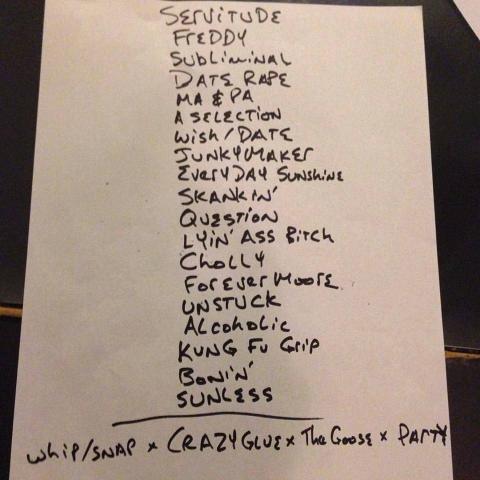 SERVITUDE
FREDDY
SUBLIMINAL
DATE RAPE
MA & PA
A SELECTION
WISH/DATE
JUNKYMAKER
EVERYDAY SUNSHINE
SKANKIN'
QUESTION
LYIN' ASS BITCH
CHOLLY
FOREVER MOORE
UNSTUCK
ALCOHOLIC
KUNG FU GRIP
BONIN'
SUNLESS
WHIP/SNAP x CRAZYGLUE x THE GOOSE x PARTY